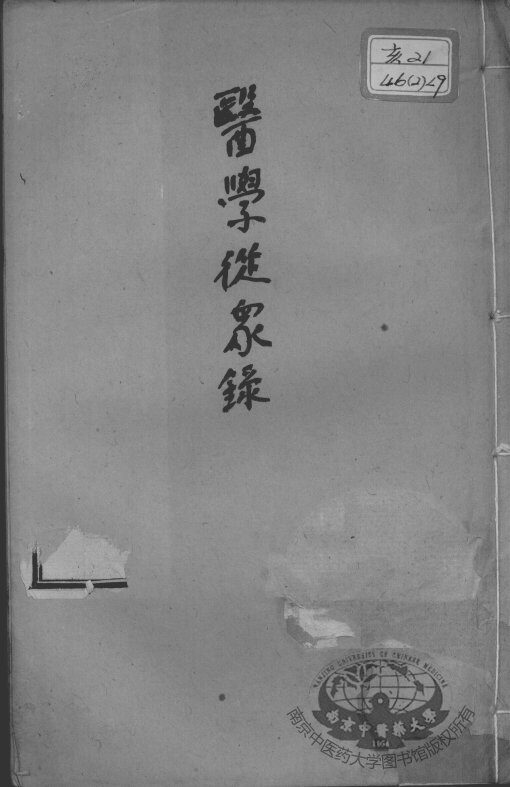 亥21
46(2)29
醫學從眾錄
NANJING UNIVERSITY OF CHINESE MEDICINE
南京中醫藥大學
1954
南京中医药大学图书馆版权所有